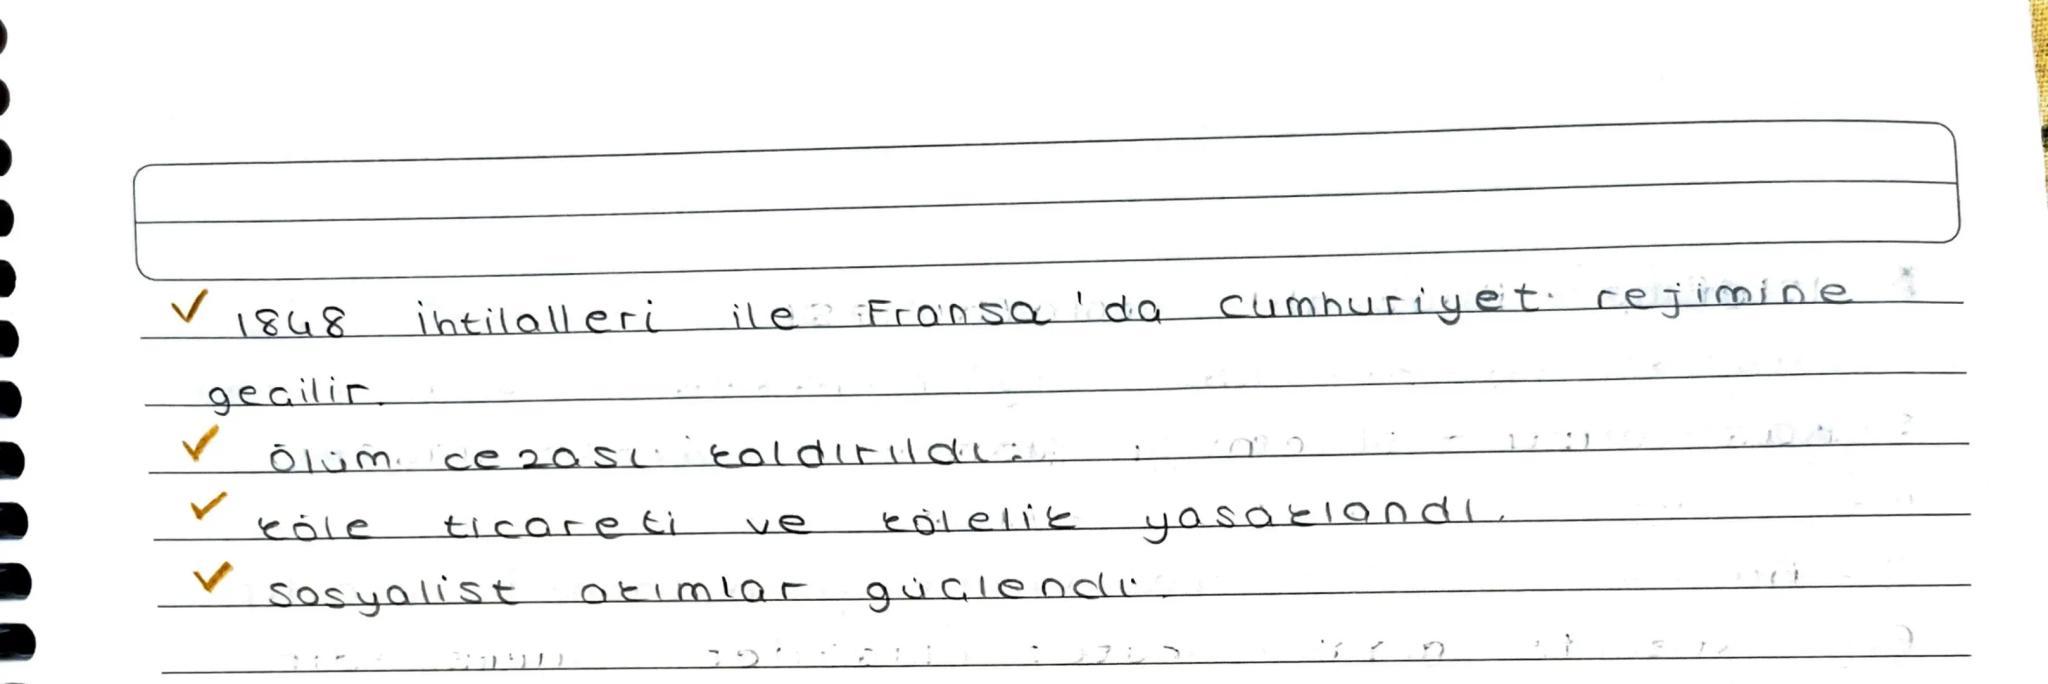 ✓ 1848 ihtilalleri ile Fransa'da cumhuriyet rejimine
geçilir.
✓ Ölüm cezası kaldırıldı.
✓ köle ticareti ve kölelik yasaklandı.
✓ sosyalist akımlar güçlendi.